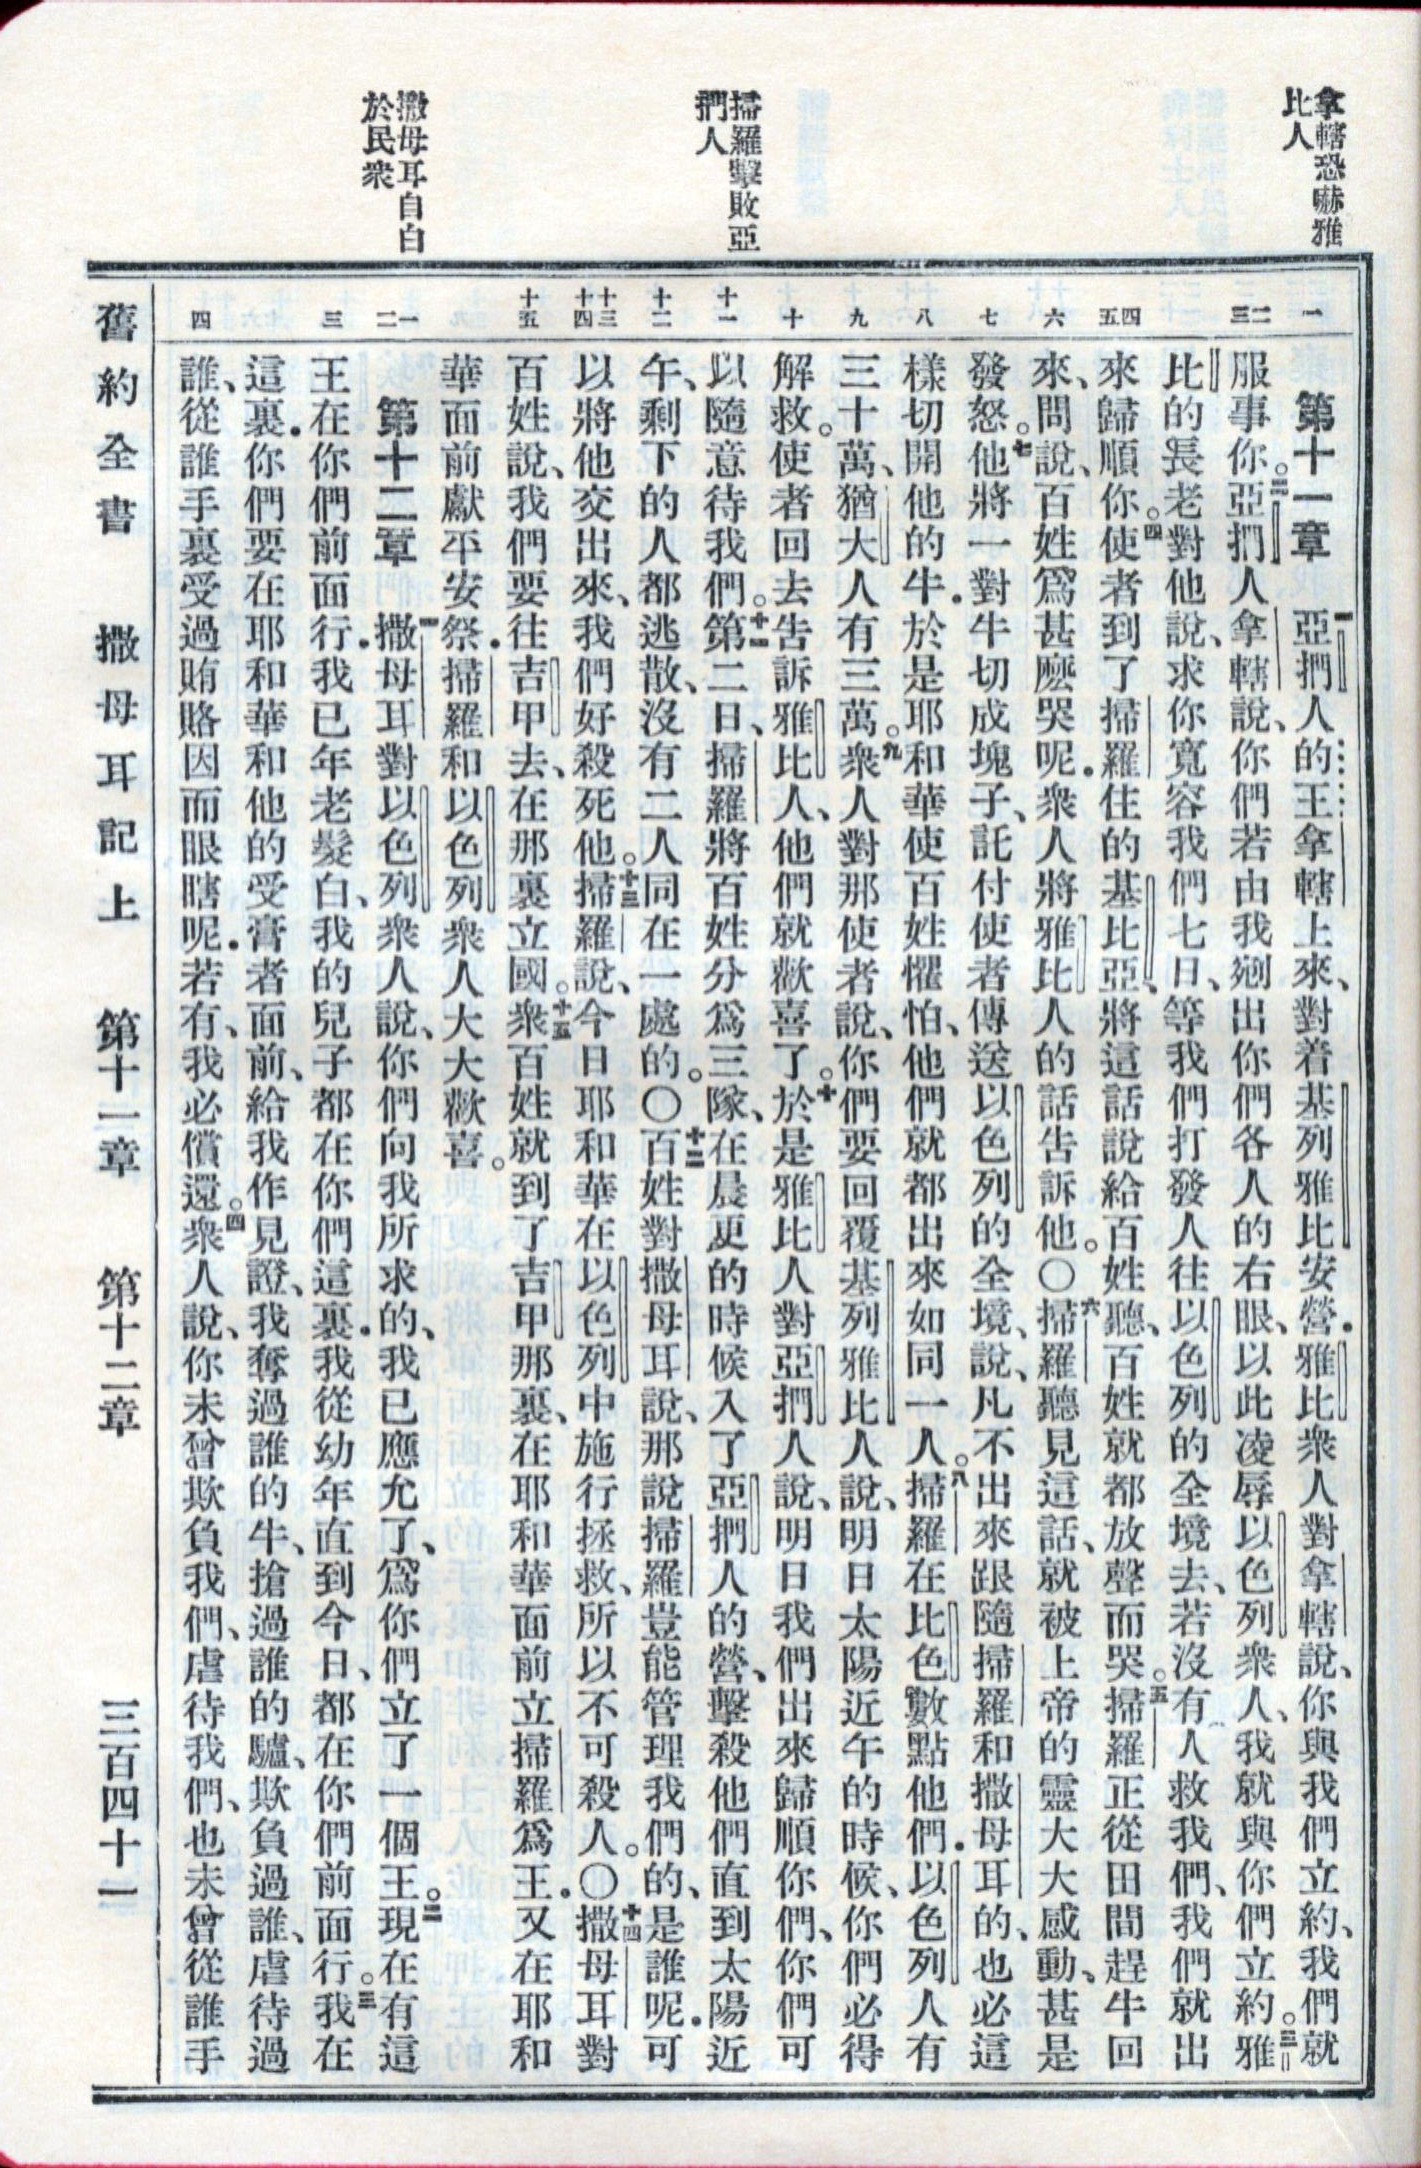 拿轄恐嚇雅
比人
掃羅擊敗亞
捫人
撒母耳自白
於民衆
一
二
三
四
五
六
七
八
九
十
十一
十二
十三
十四
十五
一
二
三
四
第十一章 一亞捫人的王拿轄上來、對着基列雅比安營．雅比衆人對拿轄說、你與我們立約、我們就
服事你。二亞捫人拿轄說、你們若由我剜出你們各人的右眼、以此凌辱以色列衆人、我就與你們立約。三雅
比的長老對他說、求你寬容我們七日、等我們打發人往以色列的全境去、若沒有人救我們、我們就出
來歸順你。四使者到了掃羅住的基比亞、將這話說給百姓聽、百姓就都放聲而哭。五掃羅正從田間趕牛回
來、問說、百姓爲甚麽哭呢．衆人將雅比人的話告訴他。〇六掃羅聽見這話、就被上帝的靈大大感動、甚是
發怒。七他將一對牛切成塊子、託付使者傳送以色列的全境、說、凡不出來跟隨掃羅和撒母耳的、也必這
樣切開他的牛．於是耶和華使百姓懼怕、他們就都出來如同一人。八掃羅在比色數點他們．以色列人有
三十萬、猶大人有三萬。九衆人對那使者說、你們要回覆基列雅比人說、明日太陽近午的時候、你們必得
解救。使者回去告訴雅比人、他們就歡喜了。十於是雅比人對亞捫人說、明日我們出來歸順你們、你們可
以隨意待我們。十一第二日、掃羅將百姓分爲三隊、在晨更的時候入了亞捫人的營、擊殺他們直到太陽近
午、剩下的人都逃散、沒有二人同在一處的。〇十二百姓對撒母耳說、那說掃羅豈能管理我們的、是誰呢．可
以將他交出來、我們好殺死他。十三掃羅說、今日耶和華在以色列中施行拯救、所以不可殺人。〇十四撒母耳對
百姓說、我們要往吉甲去、在那裏立國。十五衆百姓就到了吉甲那裏、在耶和華面前立掃羅爲王．又在耶和
華面前獻平安祭．掃羅和以色列衆人大大歡喜。
第十二章 一撒母耳對以色列衆人說、你們向我所求的、我已應允了、爲你們立了一個王。二現在有這
王在你們前面行．我已年老髮白、我的兒子都在你們這裏．我從幼年直到今日、都在你們前面行。三我在
這裏．你們要在耶和華和他的受膏者面前、給我作見證、我奪過誰的牛、搶過誰的驢、欺負過誰、虐待過
誰、從誰手裏受過賄賂因而眼瞎呢．若有、我必償還。四衆人說、你未曾欺負我們、虐待我們、也未曾從誰手
舊約全書 撒母耳記上 第十一章 第十二章 三百四十二